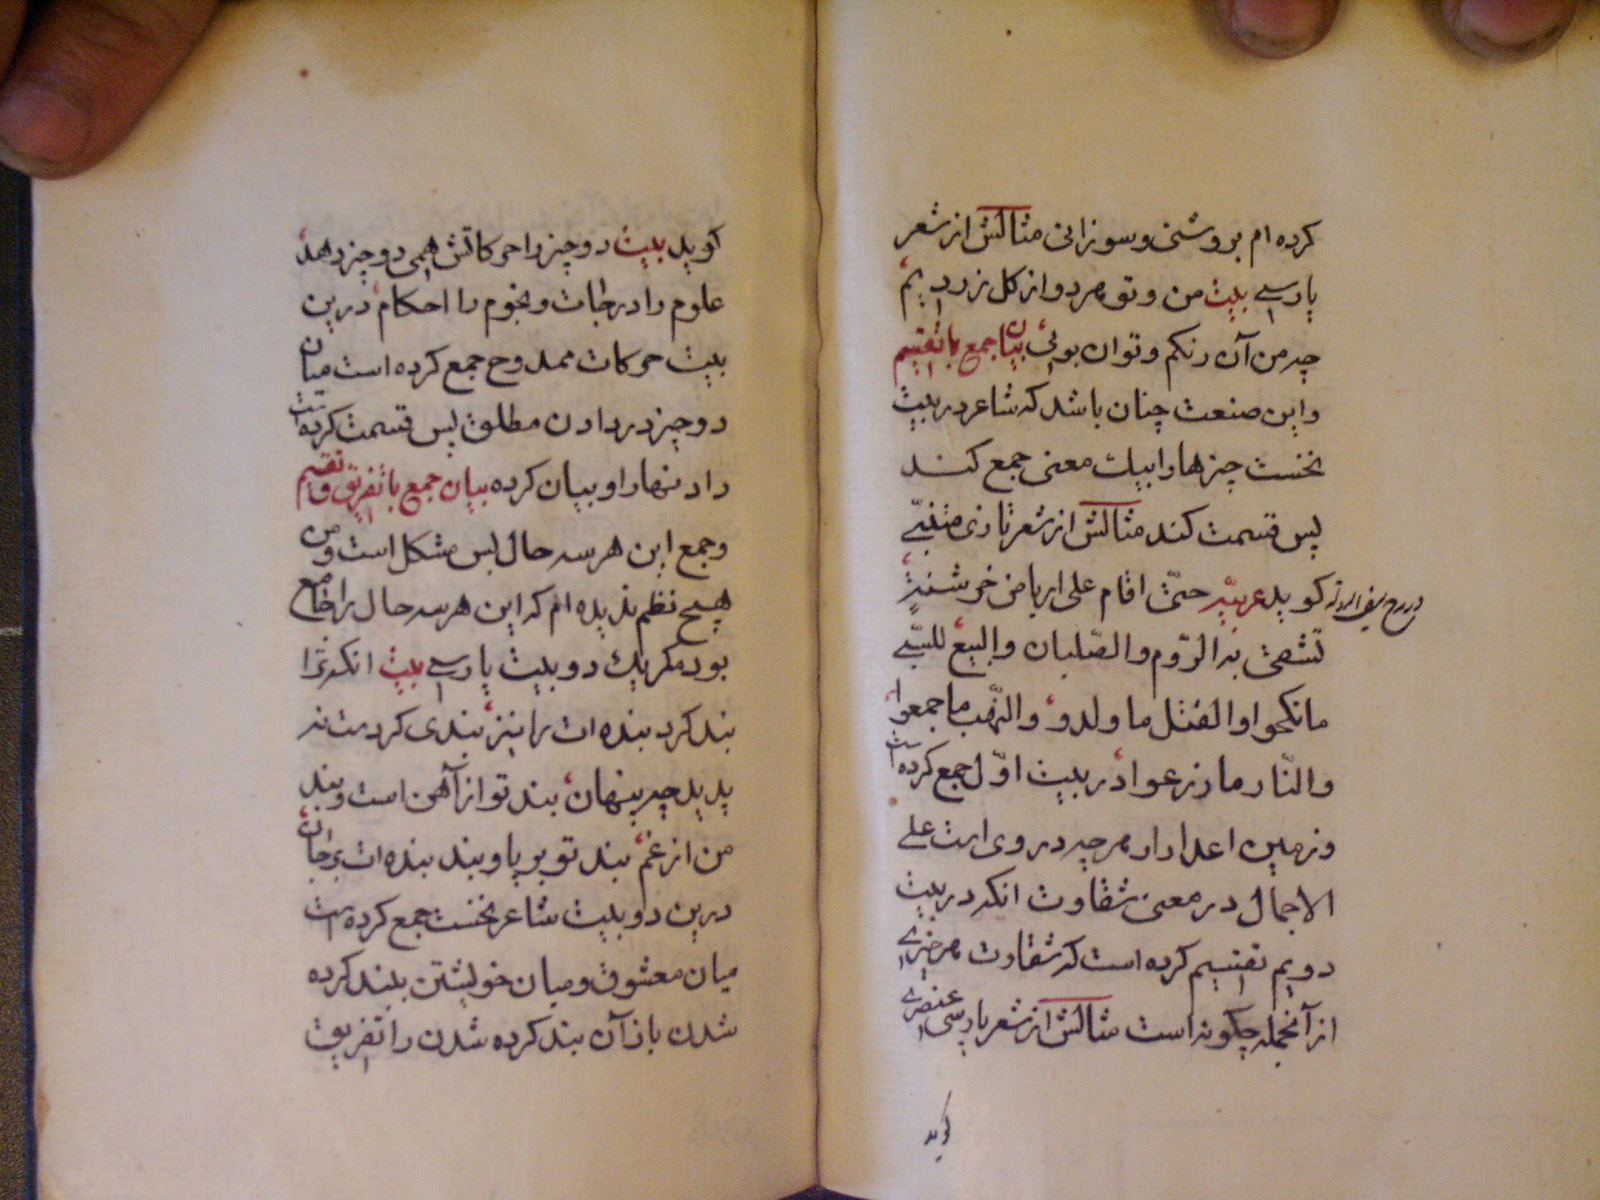 کرده ام بروشنی و سوزانی مثالش از شعر
پارسی بیت من و تو هر دو از کل زردیم
چه من آن رنکم و تو ان بوئی بیان جمع با تقسیم
و این صنعت چنان باشد که شاعر در بیت
نخست چیزها را بیک معنی جمع کند
پس قسمت کند مثالش از شعر تازی متنبّی
کوید عربیّه حتّی اقام علی ارباض خرشنةٍ
در مدح سیف الدوله
تشقی به الرّوم والصّلبان والبیع للسّبی
مانکحوا والقتل ما ولدو والنّهب ما جمعوا
والنّار ما زرعوا در بیت اوّل جمع کرده است
و زمین اعدا را و هرچه در وی است علی
الاجمال در معنی شقاوت انکه در بیت
دویم تقسیم کرده است که شقاوت هر چیزی
از آنجمله چکونه است مثالش از شعر پارسی عنصری
کوید
کوید بیت دو چیز را حرکاتش همی دو چیز دهد
علوم را درجات و نجوم را احکام درین
بیت حرکات ممدوح جمع کرده است میان
دو چیز در دادن مطلق پس قسمت کرده است
داد تنها را و بیان کرده بیان جمع با تفریق و تقسیم
و جمع این هر سه حال بس مشکل است و من
هیچ نظم ندیده ام که این هر سه حال را جامع
بود مکر یک دو بیت پارسی بیت انکه ترا
بند کرد بنده ات را نیز بندی کردست نه
پدید چه پنهان بند تو از آهن است و بند
من از غم بند تو بر پا و بند بنده ات بر جان
درین دو بیت شاعر نخست جمع کرده است
میان معشوق و میان خویشتن ببند کرده
شدن باز آن بند کرده شدن را تفریق